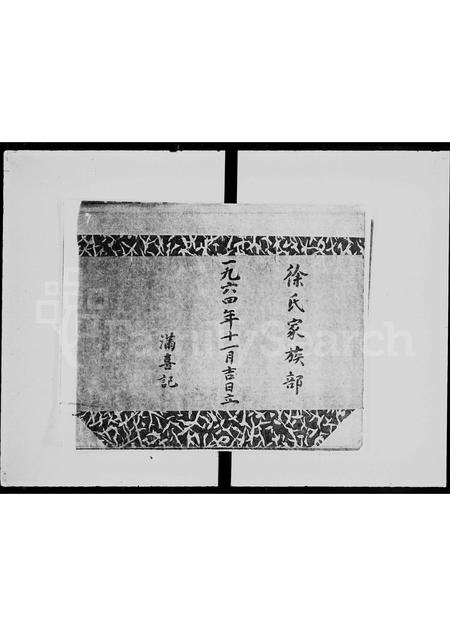 徐氏家族部
一九六四年十一月吉日立
滿喜記
FamilySearch